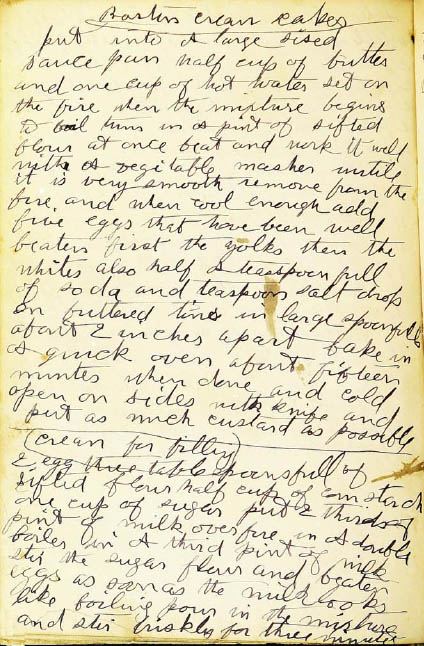 Bostin cream cakes
put into A large sised
sauce pan half cup of butter
and one cup of hot water set on
the fire when the mixture begins
to boil turn in a pint of sifted
flour at once beat and work it well
with A vegitable masher untile
it is very smooth remove from the
fire, and when cool enough add
five eggs that have been well
beaten first the yolks then the
whites also half a teaspoon full
of soda and teaspoon salt drop
on buttered tins in large spoonfulls
about 2 inches apart bake in
A quick oven about fifteen
minutes when done and cold
open on sides with knife and
put as much custard as possible
(cream for filling)
2 egg three tablespoonsfull of
sifted flour half cup of corn starch
one cup of sugar put 2 thirds of
pint of milk over fire in A double
boiler in A third pint of milk
stir the sugar flour and beaten
eggs as soon as the milk looks
like boiling pour in the mixture
and stir briskly for three minutes